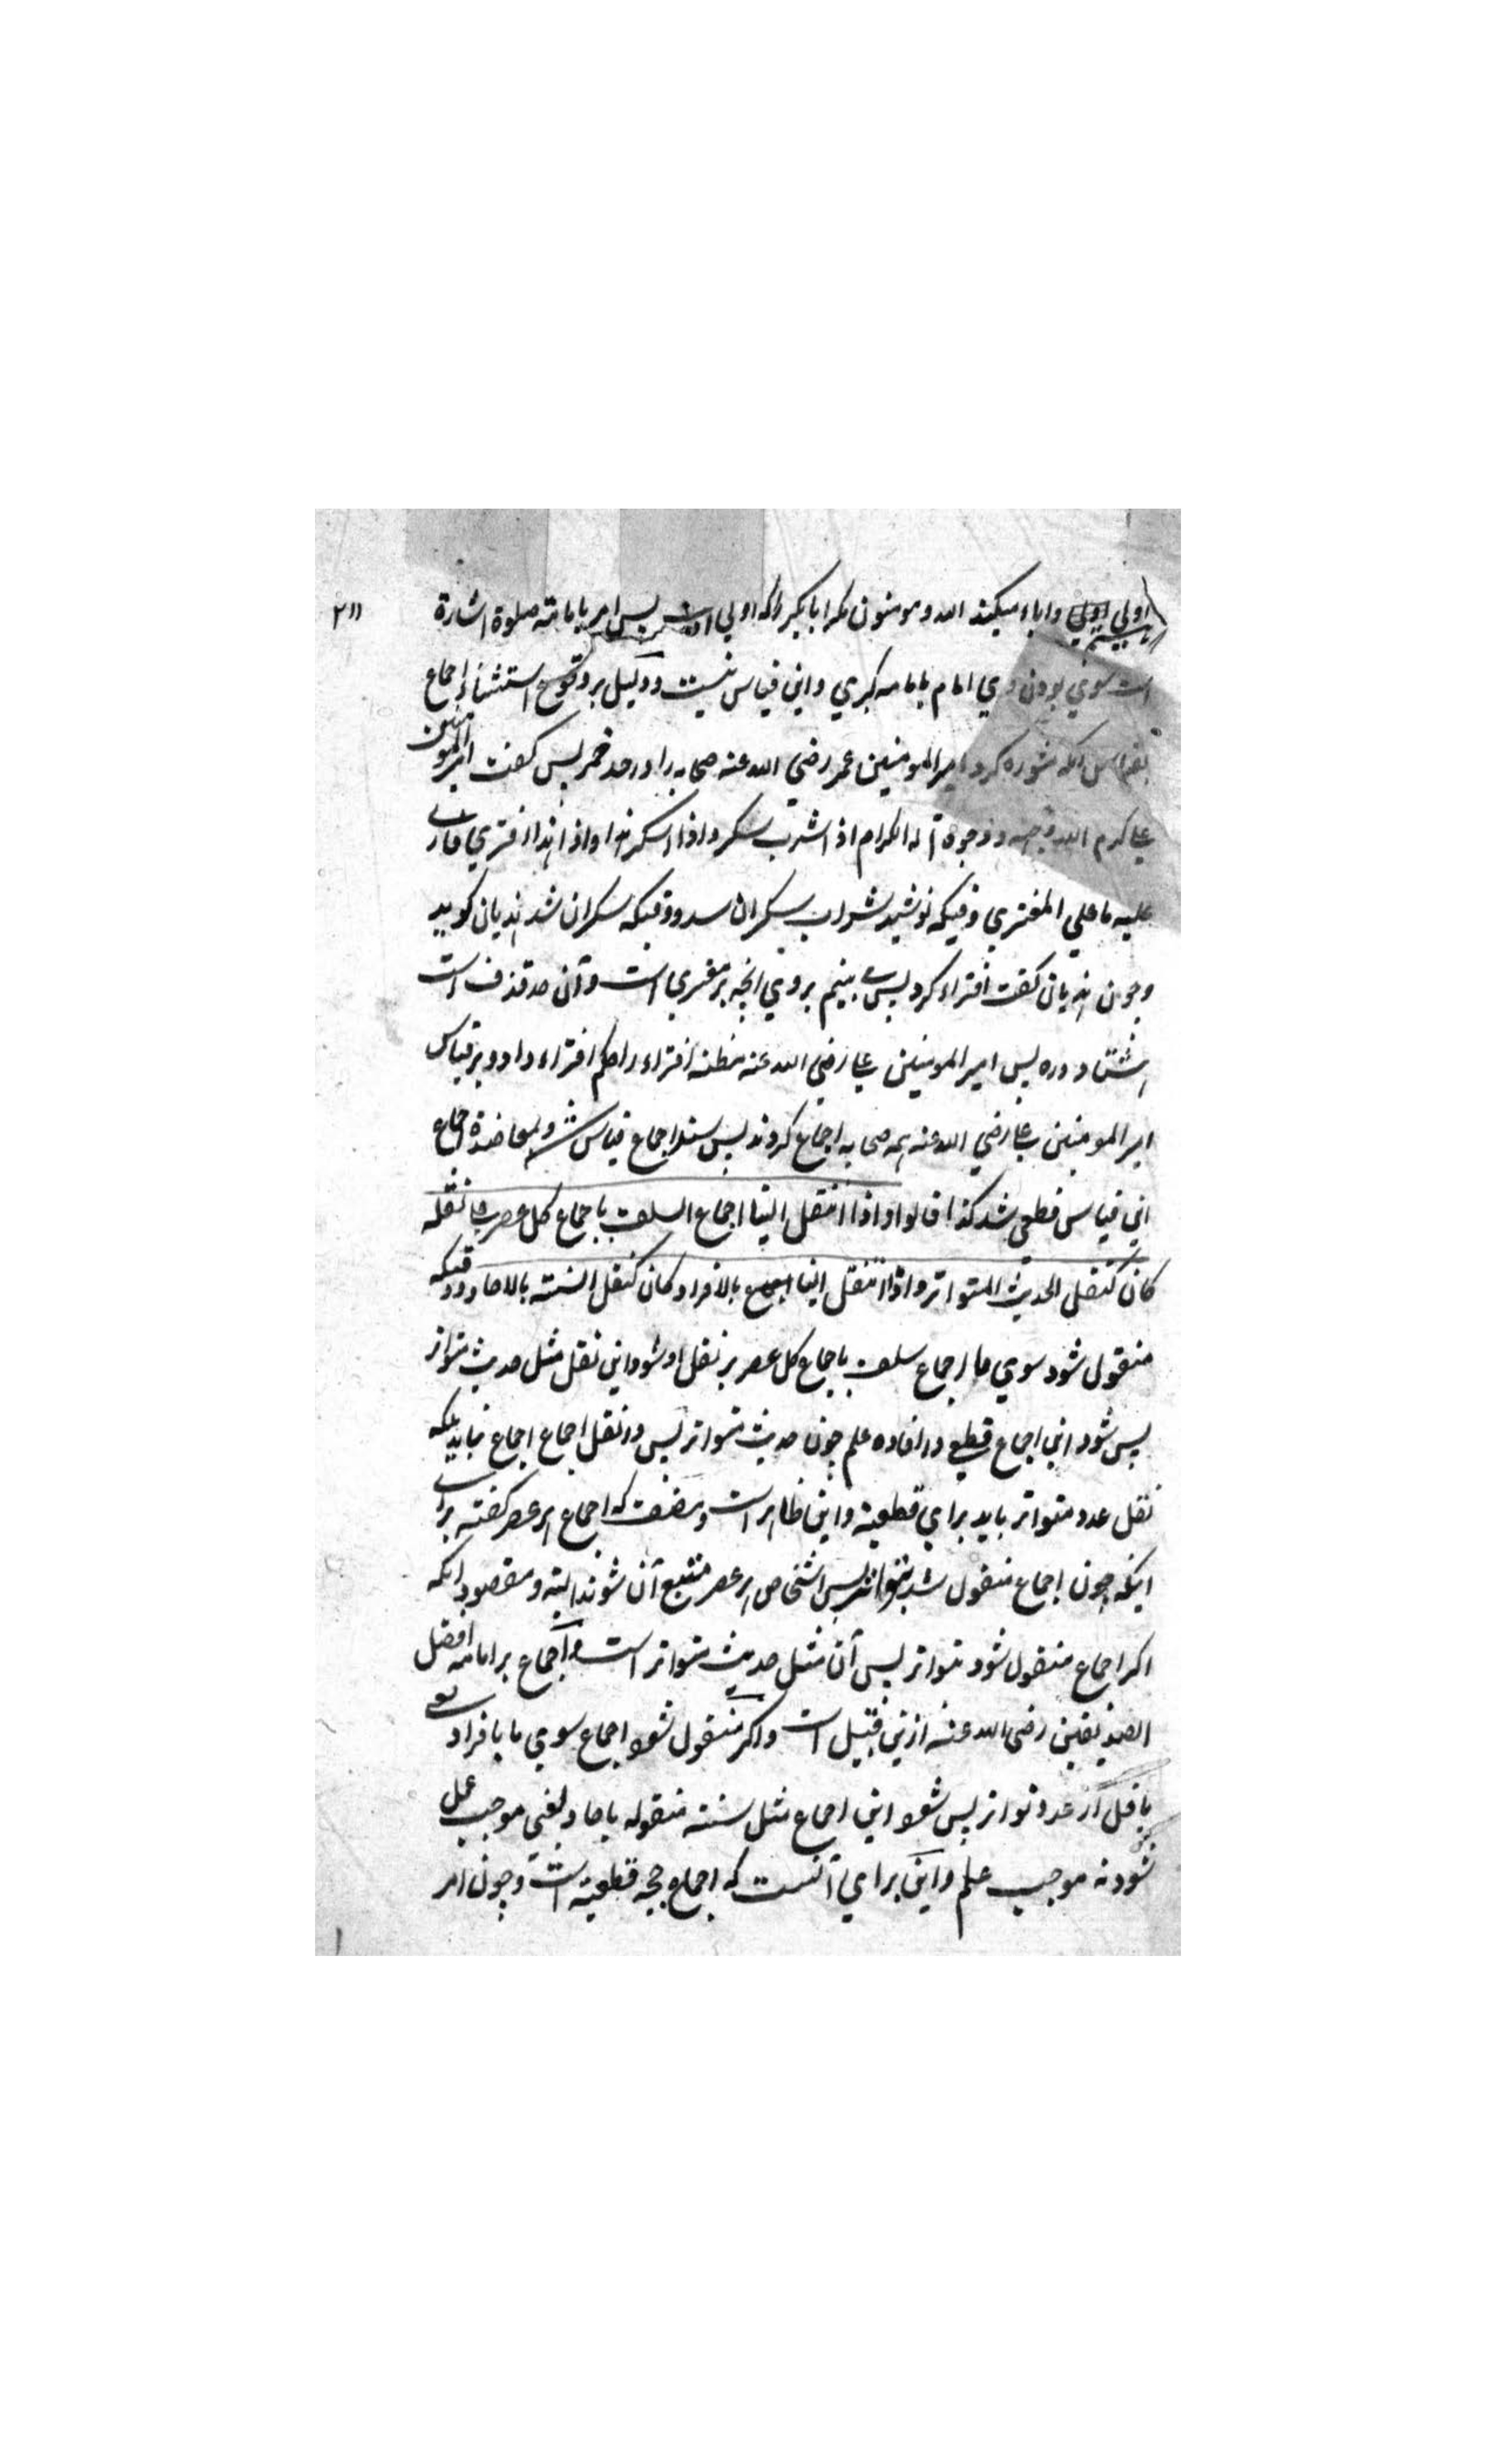 اولي واباء میکند الله ومومنون مکر ابابکر را که اولي است پس امر بامامته صلوة اشارة
است سوي بودن وي امام بامامه کبري واین قیاس نیست ودلیل بر وقوع استثناء اجماع
بقیاس انکه مشوره کرد امیرالمومنین عمر رضي الله عنه صحابه را در حد خمر پس کفت امیرالمومنین
علي کرم الله وجهه ووجوه آله الکرام اذا شرب سکر واذا اسکر هذا واذا هذا افتري فاري
علیه ما علي المفتري وقتیکه نوشید شراب سکران شد ووقتیکه سکران شد هذیان کوید
وچون هذیان کفت افتراء کرد پس بینم بر وي انچه بر مفتري است وآن حد قذف است
هشتاد دره پس امیر المومنین علي رضي الله عنه مظنه افتراء را حکم افتراء داد وبر قیاس
امیر المومنین علي رضي الله عنه همه صحابه اجماع کردند پس سند اجماع قیاس شد وبمعاضدة اجماع
این قیاس قطعي شد کذا قالوا واذا انتقل الینا اجماع السلف باجماع کل عصر علي نقله
کان کنقل الحدیث المتواتر واذا انتقل الینا بالافراد کان کنقل السنته بالاحاد ووقتیکه
منقول شود سوي ما اجماع سلف باجماع کل عصر بر نقل او شود این نقل مثل حدیث متواتر
پس شود این اجماع قطعي در افاده علم چون حدیث متواتر پس در نقل اجماع اجماع نباید بلکه
نقل عدد متواتر باید براي قطعیة واین ظاهر است ومصنف که اجماع هر عصر کفته براي
اینکه چون اجماع منقول شد بتواتر پس اشخاص هر عصر متبع آن شوند البته ومقصود انکه
اکر اجماع منقول شود متواتر پس آن مثل حدیث متواتر است واجماع بر امامه افضل
الصدیقین رضي الله عنه ازین قبیل است واکر منقول شود اجماع سوي ما بافراد یعني
باقل از عدد تواتر پس شود این اجماع مثل سنته منقوله باحاد یعني موجب عمل
شود نه موجب علم واین براي آنست که اجماع حجه قطعیة است وچون امر